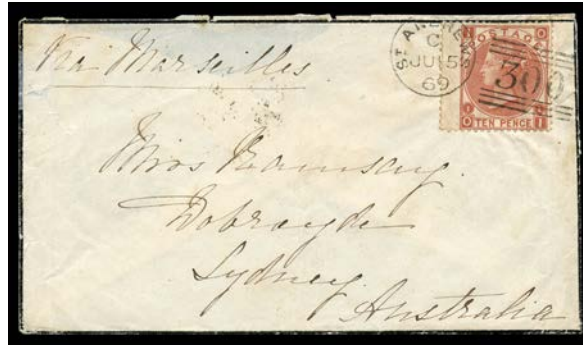 Via Marseilles
ST ANDREWS
C
JU 5
69
300
POSTAGE
TEN PENCE
O I
Miss Ramsay.
Dobroyde
Sydney.
Australia